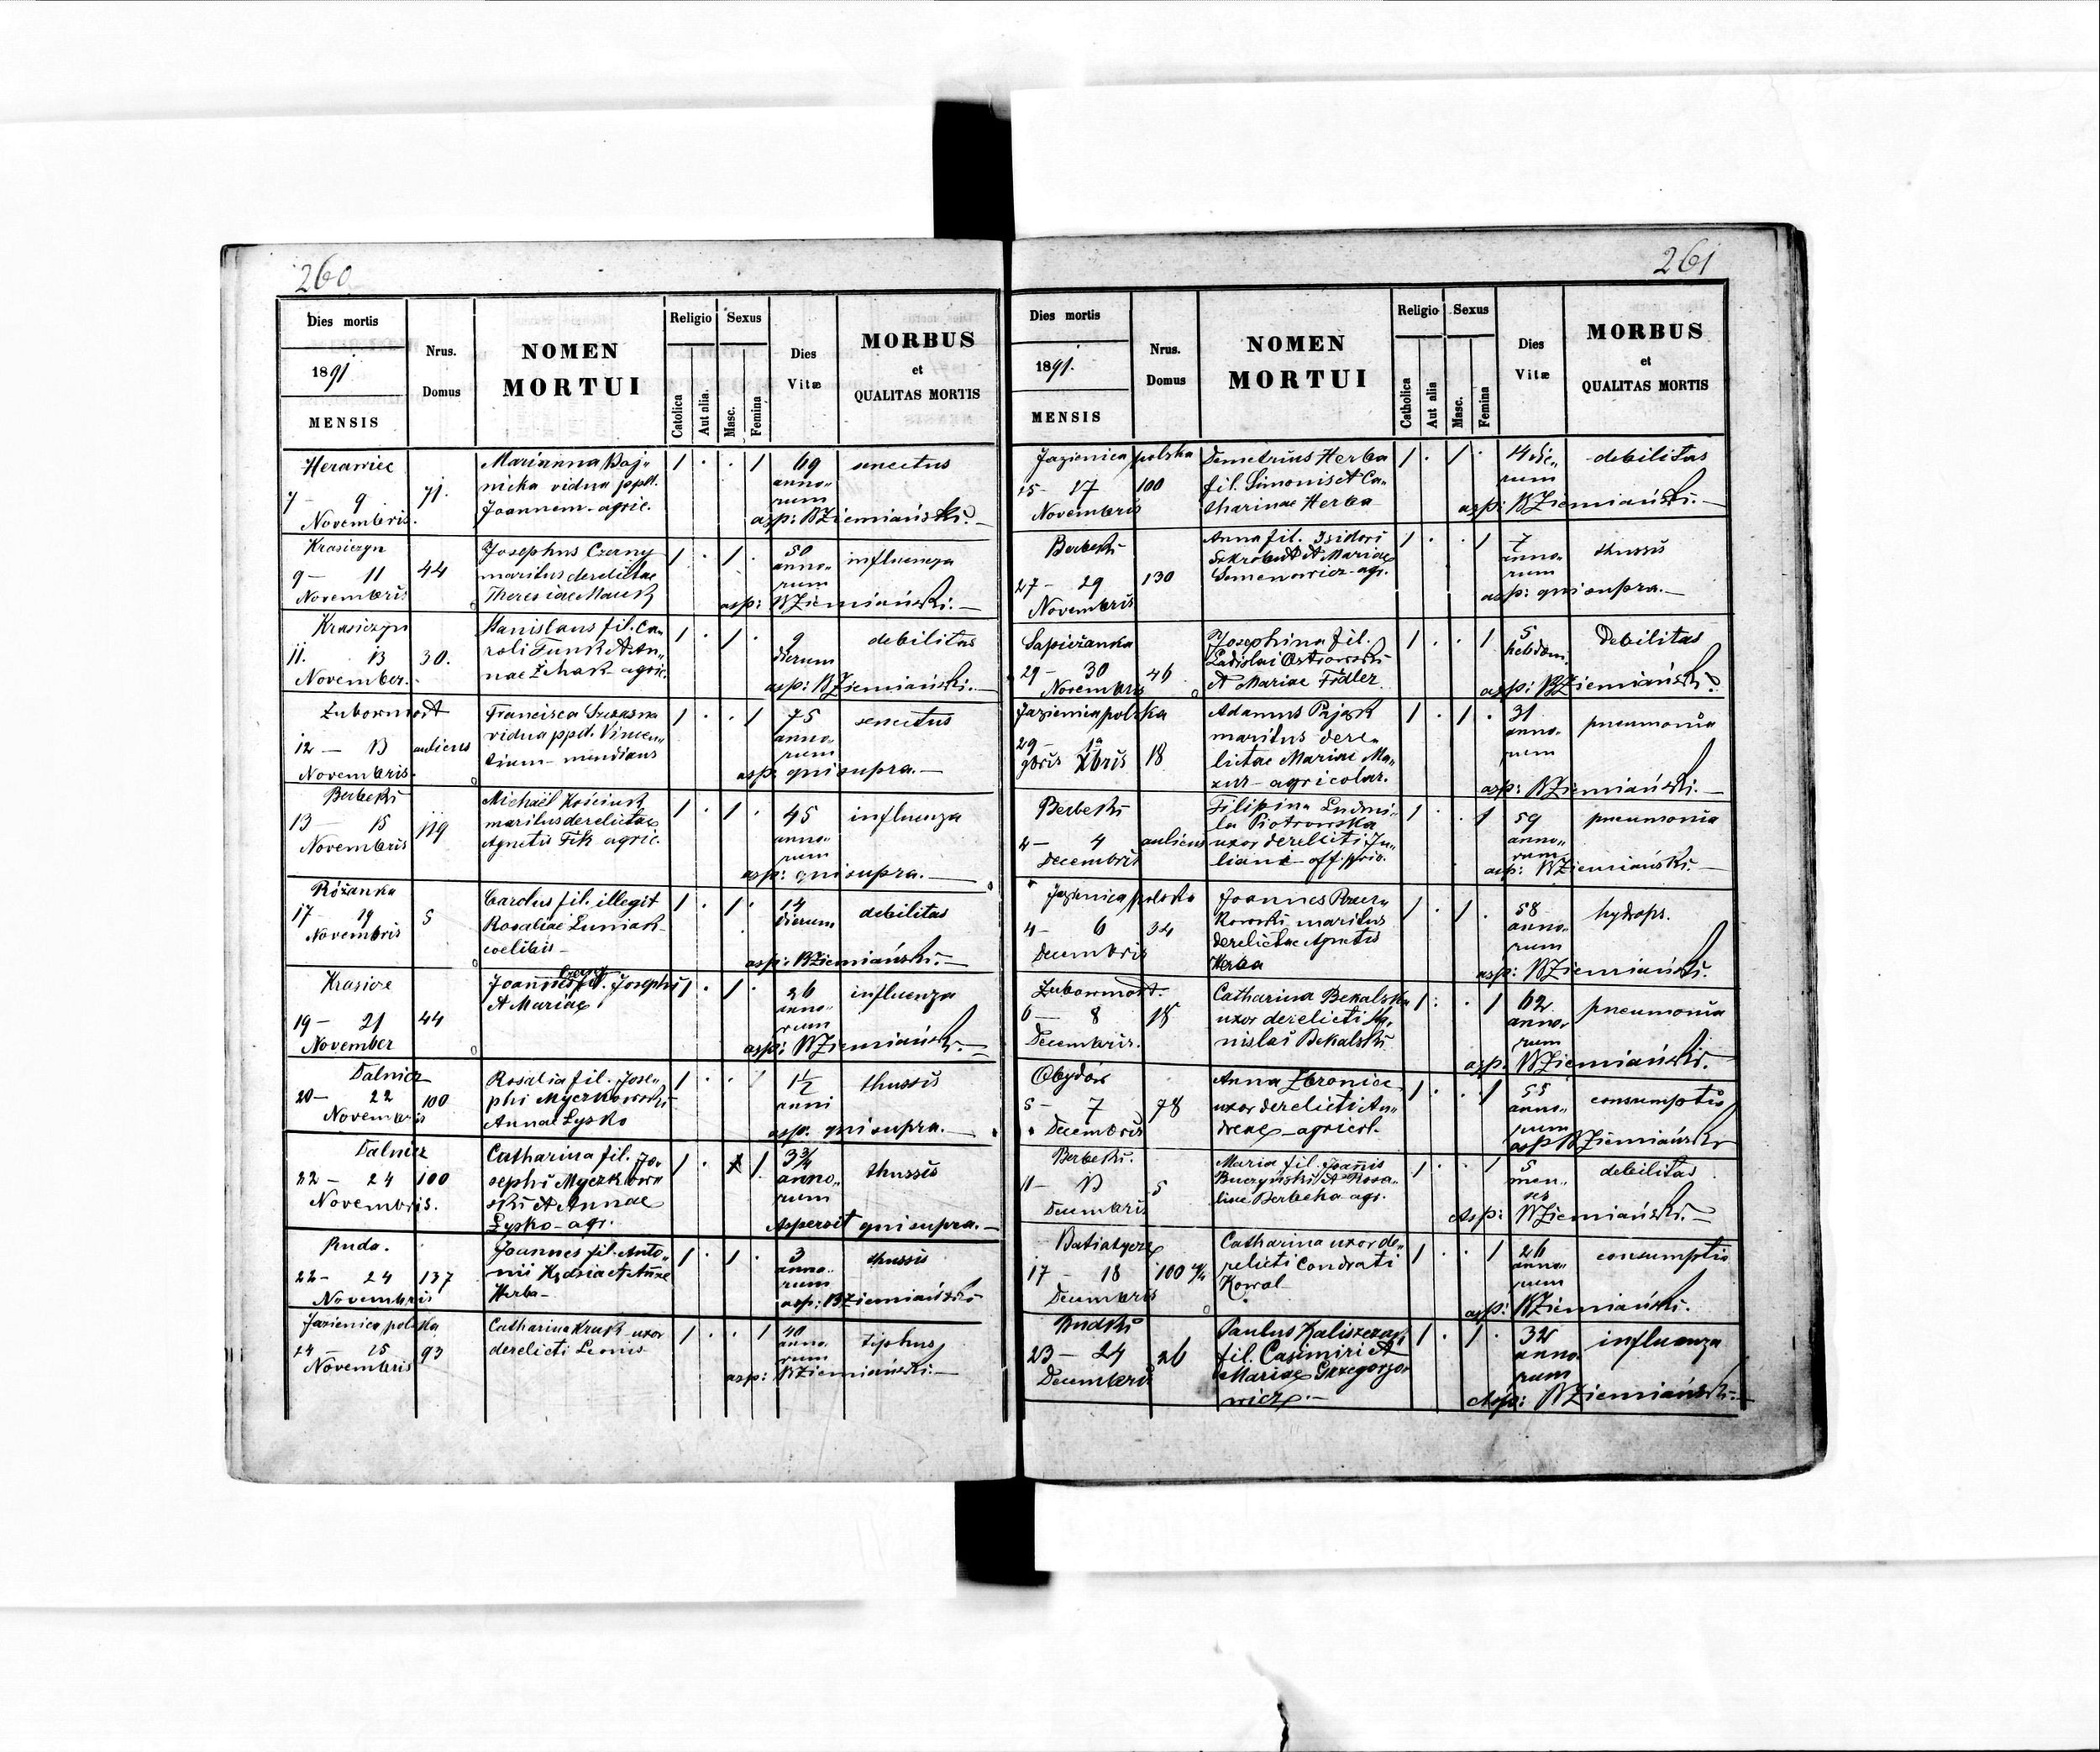 260
Dies mortis
1891
MENSIS
Nrus.
Domus
NOMEN
MORTUI
Religio
Catolica
Aut alia.
Sexus
Masc.
Femina
Dies
Vitæ
MORBUS
et
QUALITAS MORTIS
Herawiec
7 — 9
Novembris.
71.
Marianna Baj„
nicka vidua ppd.
Joannem - agric.
1 . . 1
69
anno„
rum
senectus
asp: BZiemiański. —
Krasiczyn
9 — 11
Novembris
44
Josephus Czerny
maritus derelictae
Theresiae Mauk
1 . 1 .
50
anno„
rum
influenza
asp: BZiemiański. —
Krasiczyn
11. 13
November.
30.
Stanislaus fil. Ca„
roli Funk et An„
nae Żehak agric.
1 . 1 .
9
dierum
debilitas
asp: BZiemiański. —
Żubowmost
12 — 13
Novembris.
aulicus
Francisca
vidua ppd. Vincen„
tium - mendicans
1 . . 1
75
anno„
rum
senectus
asp: qui supra. —
Berbeki
13 — 15
Novembris
119
Michaël Kościuk
maritus derelictae
Agnetis Fik agric.
1 . 1 .
45
anno„
rum
influenza
asp: qui supra. —
Różanka
17 — 19
Novembris
5
Carolus fil. illegit
Rosaliae Łuniak
coelibis —
1 . 1 .
14
dierum
debilitas
asp: BZiemiański. —
Krasicze
19 — 21
November
44
Czerny
Joannes fil. Josephi
et Mariae
1 . 1 .
26
anno„
rum
influenza
asp: BZiemiański. —
Dalnicz
20 — 22
Novembris
100
Rosalia fil. Jose„
phi Myczkowski
Annae Łysko
1 . . 1
1½
anni
thussis
asp. qui supra. —
Dalnicz
22 — 24
Novembris.
100
Catharina fil. Jo„
sephi Myczkow„
ski et Annae
Łysko - agr.
1 . 1 1.
3¾
anno„
rum
thussis
Aspersit qui supra. —
Ruda.
22 — 24
Novembris
137
Joannes fil. Anto„
nii Kędsia et Annae
Herba —
1 . 1 .
3
anno„
rum
thussis
asp: BZiemiański
Jazienica polska
24 — 25
Novembris
93
Catharina Kruk uxor
derelicti Leonis
1 . . 1
40
anno„
rum
tiphus
asp: BZiemiański. —
261
Dies mortis
1891.
MENSIS
Nrus.
Domus
NOMEN
MORTUI
Religio
Catholica
Aut alia
Sexus
Masc.
Femina
Dies
Vitæ
MORBUS
et
QUALITAS MORTIS
Jazienica polska
15 — 17
Novembris
100
Demetrius Herba
fil. Simonis et Ca„
tharinae Herba
1 . 1 .
14 die„
rum
debilitas
asp: BZiemiański. —
Berbeki
27 — 29
Novembris
130
Anna fil. Isidori
et Mariae
Semenowicz agr.
1 . . 1
7
anno„
rum
thussis
asp: qui supra. —
Sapieżanka
29 — 30
Novembris
46
Josephina fil.
Ladislai Ostrowski
et Mariae Fidler
1 . . 1
5
hebdom.
Debilitas
asp: BZiemiański.
Jazienica polska
29 — 1a
9bris Xbris
18
Adamus Pająk
maritus dere„
lictae Mariae Ma„
zur - agricolar.
1 . 1 .
31
anno„
rum
pneumonia
asp: BZiemiański. —
Berbeki
2 — 4
Decembris
aulicus
Filipina Ludmi„
la Piotrowska
uxor derelicti Ju„
liani - off. priv.
1 . . 1
59
anno„
rum
pneumonia
asp: BZiemiański. —
Jazienica polska
4 — 6
Decembris
34
Joannes
kowski maritus
derelictae Agnetis
Herba
1 . 1 .
58
anno„
rum
hydrops.
asp: BZiemiański.
Żubowmost.
6 — 8
Decembris.
18
Catharina Bekalska
uxor derelicti Sta„
nislai Bekalski
1 . . 1
62
anno„
rum
pneumonia
asp. BZiemiański.
Obydów
5 — 7
Decembris
78
Anna Zbroniec
uxor derelicti An„
dreae - agricol.
1 . . 1
55
anno„
rum
consumptio
asp BZiemiański
Berbeki.
11 — 13
Decembris
5
Maria fil. Joañis
Buczyński et Rosa„
liae Berbeka agr.
1 . . 1
5
men„
ses
debilitas
Asp: BZiemiański. —
Batiatycze
17 — 18
Decembris
100
Catharina uxor de„
relicti Condrati
Kowal
1 . . 1
26
anno„
rum
consumptio
asp: BZiemiański.
Budki
23 — 24
Decembris
26
Paulus Kaliszczak
fil. Casimiri et
Mariae Grzegorzo
wicz. —
1 . 1 .
32
anno„
rum
influenza
Asp: BZiemiański. —